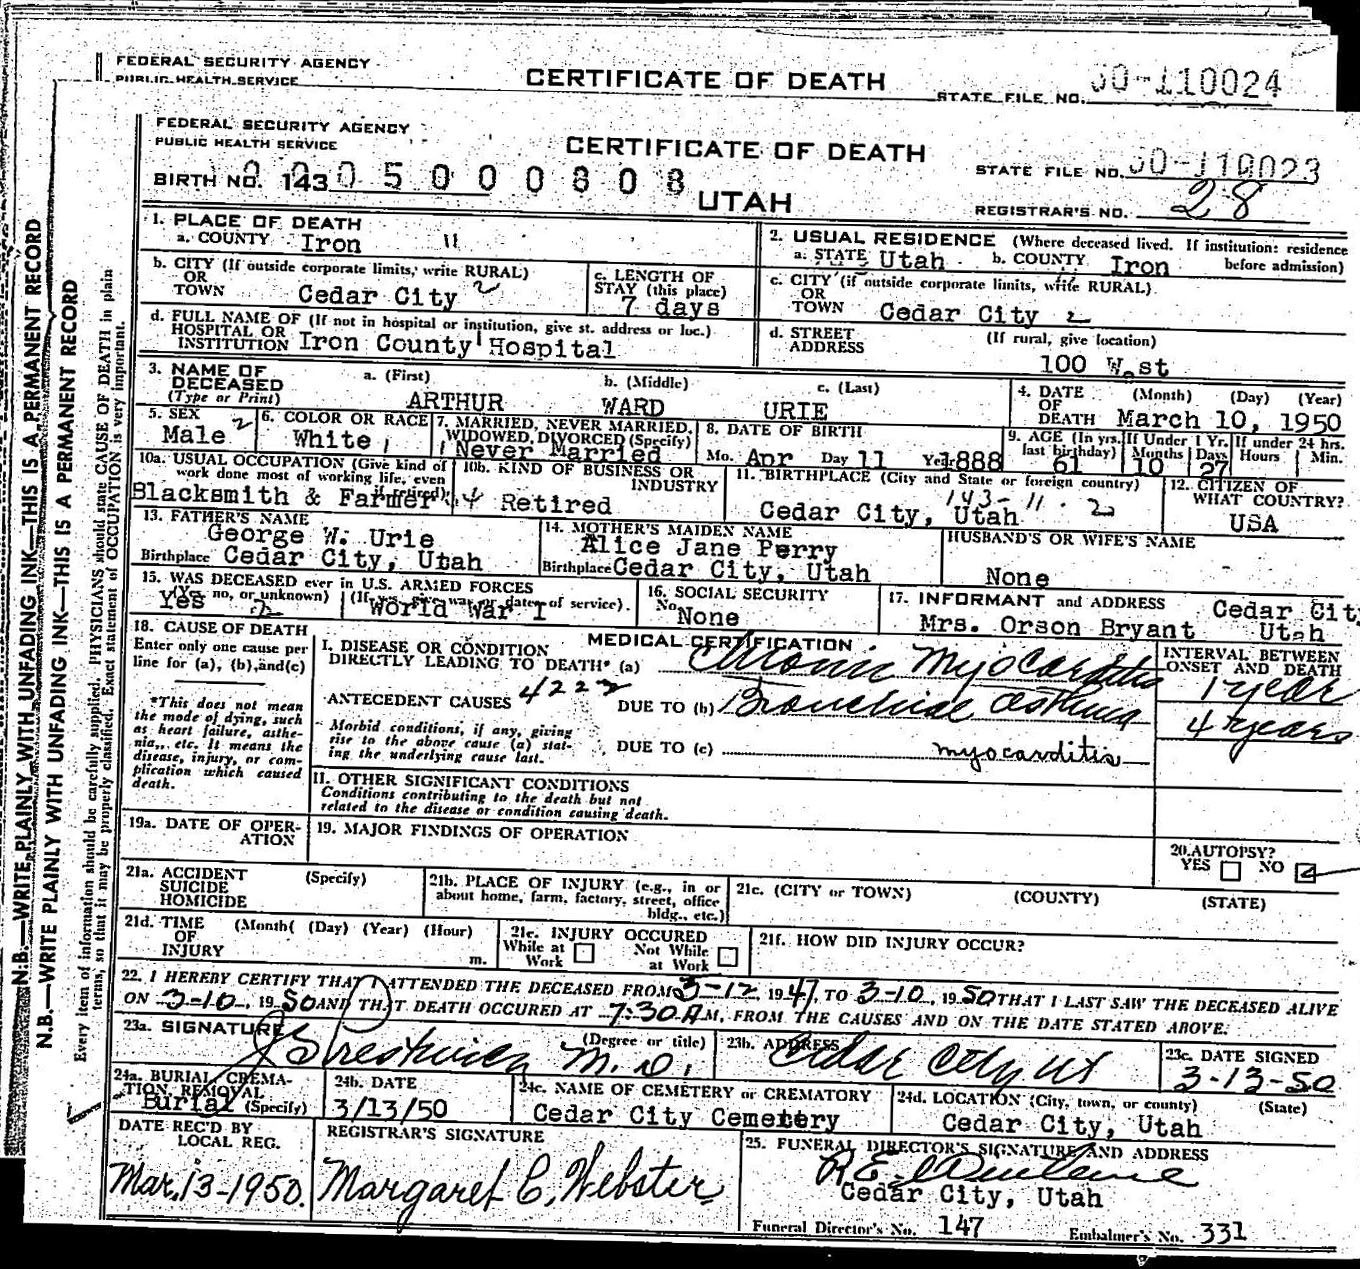 FEDERAL SECURITY AGENCY
PUBLIC HEALTH SERVICE
CERTIFICATE OF DEATH
STATE FILE NO. 50-110024
FEDERAL SECURITY AGENCY
PUBLIC HEALTH SERVICE
CERTIFICATE OF DEATH
STATE FILE NO. 50-110023
BIRTH NO. 143
UTAH
REGISTRAR'S NO. 28
1. PLACE OF DEATH
a. COUNTY Iron
2. USUAL RESIDENCE (Where deceased lived. If institution: residence before admission)
a. STATE Utah b. COUNTY Iron
b. CITY (If outside corporate limits, write RURAL) OR TOWN Cedar City
c. LENGTH OF STAY (this place) 7 days
c. CITY (if outside corporate limits, write RURAL) OR TOWN Cedar City
d. FULL NAME OF (If not in hospital or institution, give st. address or loc.) HOSPITAL OR INSTITUTION Iron County Hospital
d. STREET ADDRESS (If rural, give location)
100 W.st
3. NAME OF DECEASED (Type or Print)
a. (First) b. (Middle) c. (Last)
ARTHUR WARD URIE
4. DATE OF DEATH (Month) (Day) (Year)
March 10, 1950
5. SEX Male
6. COLOR OR RACE White
7. MARRIED, NEVER MARRIED, WIDOWED, DIVORCED (Specify) Never Married
8. DATE OF BIRTH
Mo. Apr Day 11 Year 1888
9. AGE (In yrs. last birthday) 61
If Under 1 Yr. Months 10 Days 27
If under 24 hrs. Hours Min.
10a. USUAL OCCUPATION (Give kind of work done most of working life, even if retired)
Blacksmith & Farmer
10b. KIND OF BUSINESS OR INDUSTRY
Retired
11. BIRTHPLACE (City and State or foreign country)
143-11.2
Cedar City, Utah
12. CITIZEN OF WHAT COUNTRY?
USA
13. FATHER'S NAME
George W. Urie
Birthplace Cedar City, Utah
14. MOTHER'S MAIDEN NAME
Alice Jane Perry
Birthplace Cedar City, Utah
HUSBAND'S OR WIFE'S NAME
None
15. WAS DECEASED ever in U.S. ARMED FORCES
(Yes, no, or unknown) (If yes, give war or dates of service).
Yes World War I
16. SOCIAL SECURITY No.
None
17. INFORMANT and ADDRESS Cedar Cit
Mrs. Orson Bryant Utah
18. CAUSE OF DEATH
Enter only one cause per line for (a), (b), and (c)
*This does not mean the mode of dying, such as heart failure, asthenia, etc. It means the disease, injury, or complication which caused death.
MEDICAL CERTIFICATION
INTERVAL BETWEEN ONSET AND DEATH
I. DISEASE OR CONDITION DIRECTLY LEADING TO DEATH* (a) Chronic Myocarditis 1 year
ANTECEDENT CAUSES 4222 DUE TO (b) Bronchial Asthma 4 years
Morbid conditions, if any, giving rise to the above cause (a) stating the underlying cause last.
DUE TO (c) myocarditis
II. OTHER SIGNIFICANT CONDITIONS
Conditions contributing to the death but not related to the disease or condition causing death.
19a. DATE OF OPERATION
19. MAJOR FINDINGS OF OPERATION
20. AUTOPSY?
YES NO
21a. ACCIDENT SUICIDE HOMICIDE (Specify)
21b. PLACE OF INJURY (e.g., in or about home, farm, factory, street, office bldg., etc.)
21c. (CITY or TOWN) (COUNTY) (STATE)
21d. TIME OF INJURY (Month( (Day) (Year) (Hour) m.
21e. INJURY OCCURED
While at Work Not While at Work
21f. HOW DID INJURY OCCUR?
22. I HEREBY CERTIFY THAT I ATTENDED THE DECEASED FROM 3-12, 1947, TO 3-10, 1950 THAT I LAST SAW THE DECEASED ALIVE
ON 3-10, 1950 AND THAT DEATH OCCURED AT 7:30 A.M. FROM THE CAUSES AND ON THE DATE STATED ABOVE.
23a. SIGNATURE (Degree or title)
M.D.
23b. ADDRESS
Cedar City Ut
23c. DATE SIGNED
3-13-50
24a. BURIAL CREMATION REMOVAL (Specify)
Burial
24b. DATE
3/13/50
24c. NAME OF CEMETERY OR CREMATORY
Cedar City Cemetery
24d. LOCATION (City, town, or county) (State)
Cedar City, Utah
DATE REC'D BY LOCAL REG.
Mar. 13-1950.
REGISTRAR'S SIGNATURE
Margaret C. Webster
25. FUNERAL DIRECTOR'S SIGNATURE AND ADDRESS
Cedar City, Utah
Funeral Director's No. 147 Embalmer's No. 331
N.B.—WRITE PLAINLY WITH UNFADING INK—THIS IS A PERMANENT RECORD
N.B.—WRITE PLAINLY WITH UNFADING INK—THIS IS A PERMANENT RECORD
Every item of information should be carefully supplied. PHYSICIANS should state CAUSE OF DEATH in plain
terms, so that it may be properly classified. Exact statement of OCCUPATION is very important.